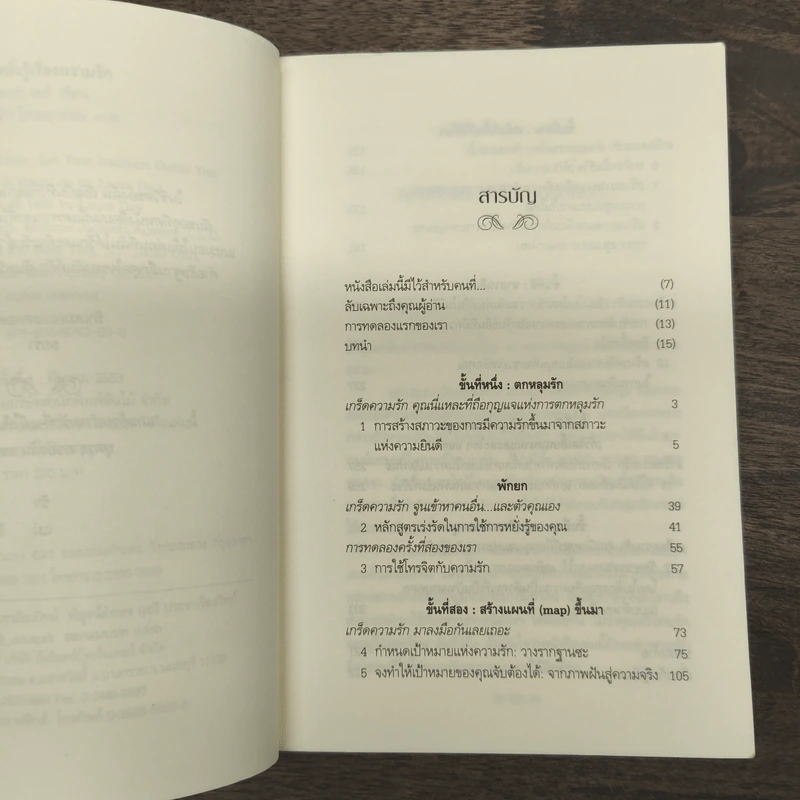 สารบัญ
หนังสือเล่มนี้มีไว้สำหรับคนที่... (7)
ลับเฉพาะถึงคุณผู้อ่าน (11)
การทดลองแรกของเรา (13)
บทนำ (15)
ขั้นที่หนึ่ง : ตกหลุมรัก
เกร็ดความรัก คุณนี่แหละที่ถือกุญแจแห่งการตกหลุมรัก 3
1 การสร้างสภาวะของการมีความรักขึ้นมาจากสภาวะ
แห่งความยินดี 5
พักยก
เกร็ดความรัก จูนเข้าหาคนอื่น...และตัวคุณเอง 39
2 หลักสูตรเร่งรัดในการใช้การหยั่งรู้ของคุณ 41
การทดลองครั้งที่สองของเรา 55
3 การใช้โทรจิตกับความรัก 57
ขั้นที่สอง : สร้างแผนที่ (map) ขึ้นมา
เกร็ดความรัก มาลงมือกันเลยเถอะ 73
4 กำหนดเป้าหมายแห่งความรัก: วางรากฐานซะ 75
5 จงทำให้เป้าหมายของคุณจับต้องได้: จากภาพฝันสู่ความจริง 105